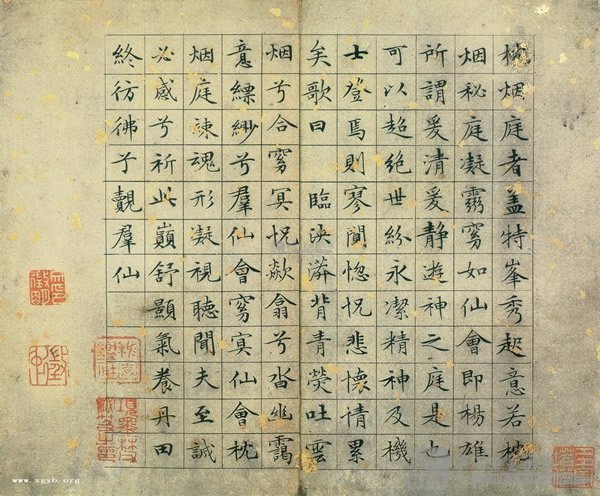 枕烟庭者蓋特峯秀起意若枕
烟秘庭凝霧窅如仙會即楊雄
所謂爰清爰靜遊神之庭是也
可以超絕世紛永潔精神及機
士登焉則寥闃惚怳悲懷情累
矣歌曰 臨泱漭背青熒吐雲
烟兮合窅冥怳欻翕兮沓幽靄
意縹緲兮羣仙會窅冥仙會枕
烟庭竦魂形凝視聽聞夫至誠
必感兮祈此巔舒顥氣養丹田
終彷彿兮覿羣仙
www.zgyb.org